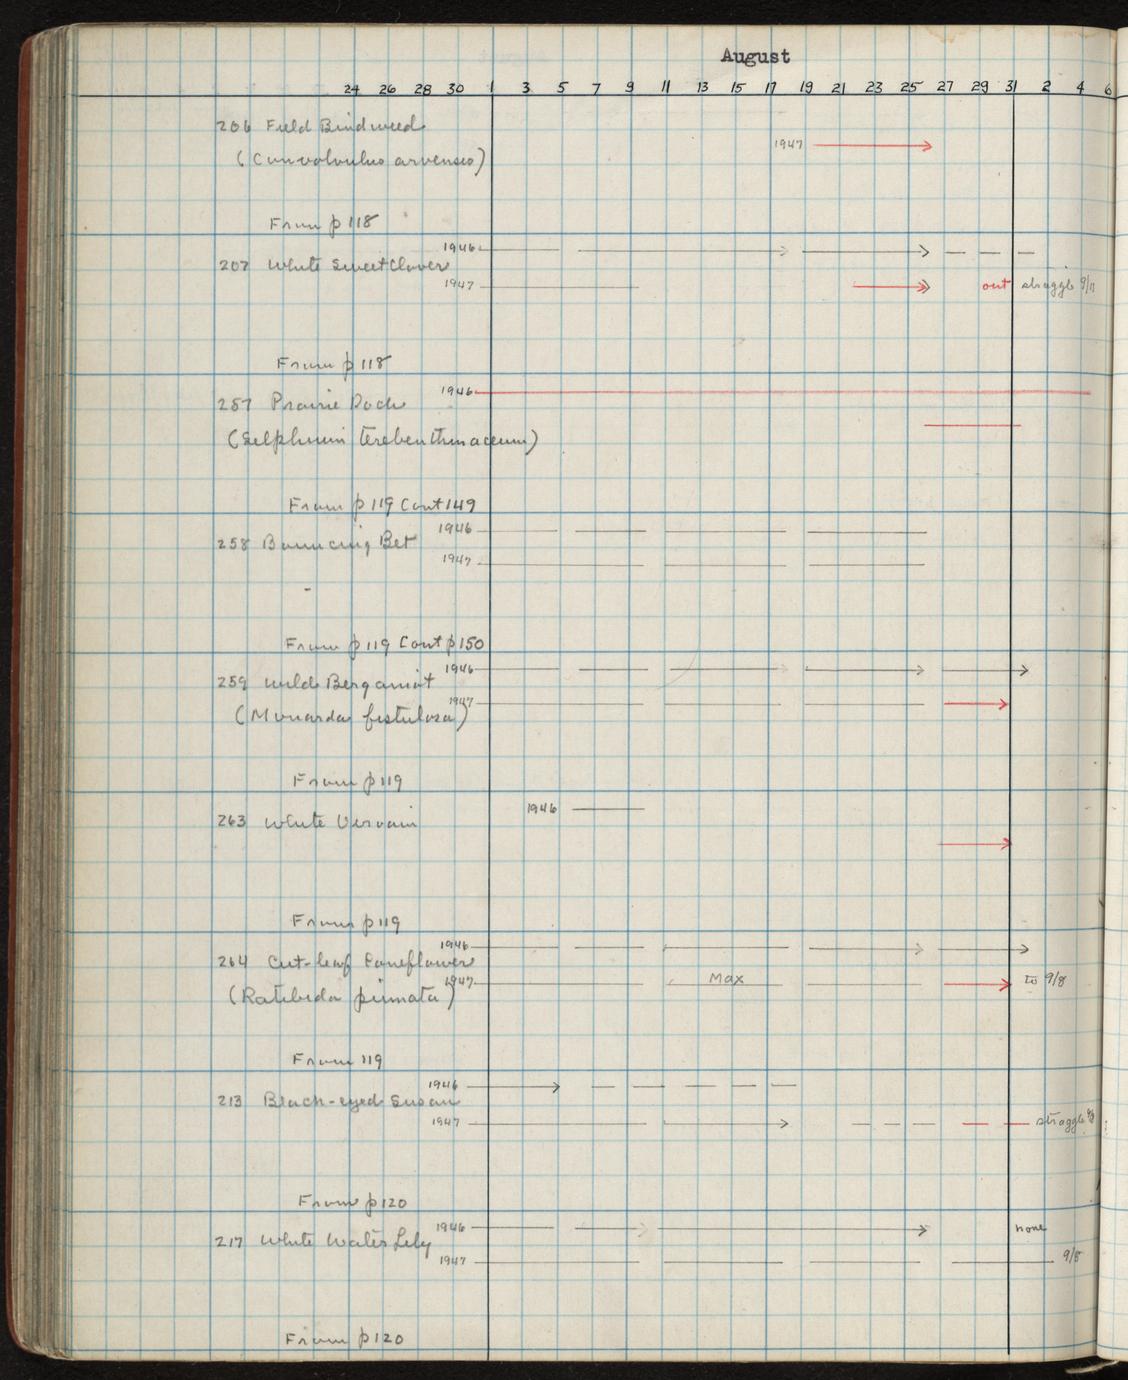 August
24 26 28 30 1 3 5 7 9 11 13 15 17 19 21 23 25 27 29 31 2 4 6
206 Field Bindweed
1947
(Convolvulus arvensis)
From p 118
1946
207 White Sweet Clover
1947 out straggle 9/11
From p 118
1946
257 Prairie Dock
(Silphium terebenthinaceum)
From p 119 Cont 149
1946
258 Bouncing Bet
1947
From p 119 Cont p 150
1946
259 Wild Bergamot
1947
(Monarda fistulosa)
From p 119
1946
263 White Vervain
From p 119
1946
264 Cut-leaf Coneflower
1947 Max to 9/8
(Ratibida pinnata)
From 119
1946
213 Black-eyed Susan
1947 straggle
From p 120
1946 none
217 White Water Lily
1947 9/8
From p 120